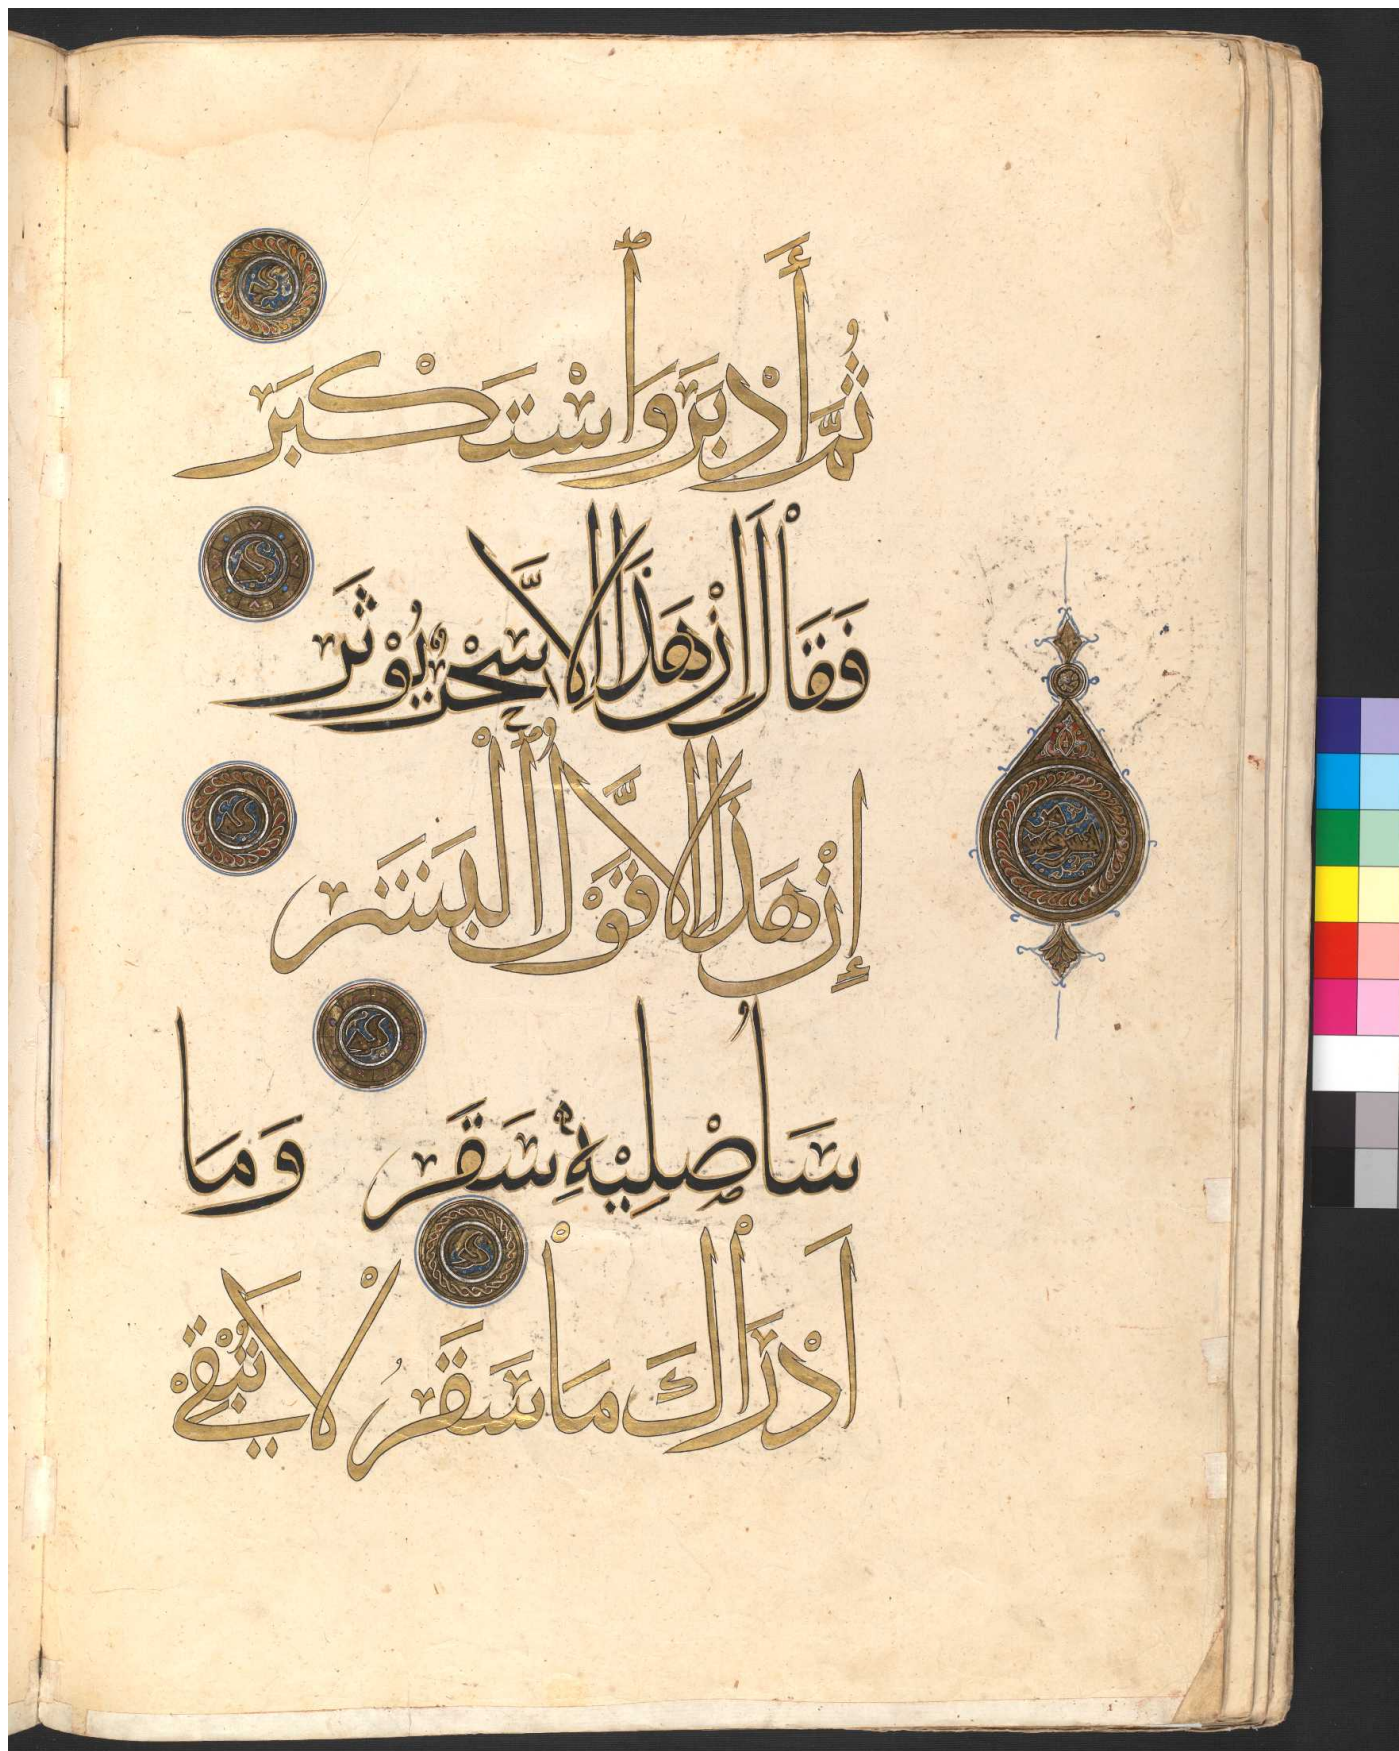 ثُمَّ أَدْبَرَ وَٱسْتَكْبَرَ
فَقَالَ اِنْ هَذَا اِلَّا سِحْرٌ يُوْثَرُ
إِنْ هَذَا اِلَّا قَوْلُ ٱلْبَشَرِ
سَاُصْلِيْهِ سَقَرَ وَمَا
اَدْرَاكَ مَا سَقَرُ لَا تُبْقِيْ